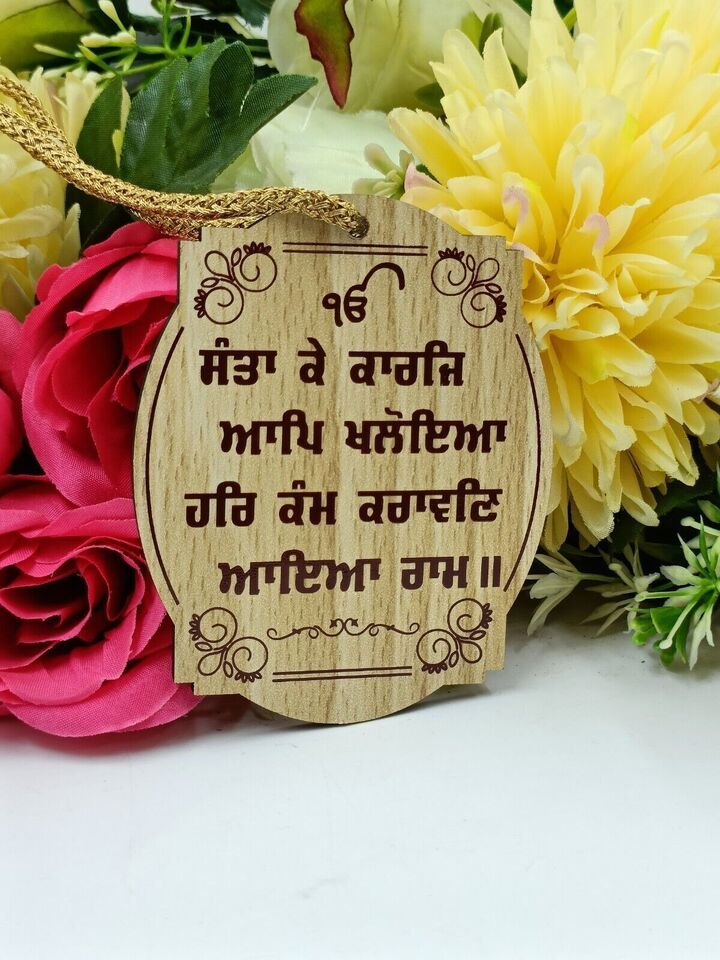 ੴ
ਸੰਤਾ ਕੇ ਕਾਰਜਿ
ਆਪਿ ਖਲੋਇਆ
ਹਰਿ ਕੰਮ ਕਰਾਵਣਿ
ਆਇਆ ਰਾਮ॥